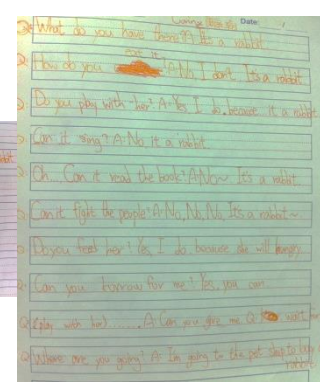 Date:
Q: What do you have there? A: It's a rabbit.
eat it
Q: How do you A: No, I don't. It's a rabbit
Q: Do you play with her? A: Yes I do, because it a rabbit
Q: Can it sing? A: No, it a rabbit.
Q: Oh... Can it read the book? A: No~ It's a rabbit.
Q: Can it fight the people? A: No, No, No, It's a rabbit~.
Q: Do you feed her? Yes, I do because she will hungry.
Q: Can you borrow for me? Yes, you can
Q: (play with her) ....... A: Can you give me Q: wait
Q: Where are you going? A: I'm going to the pet shop to buy a
rabbit.